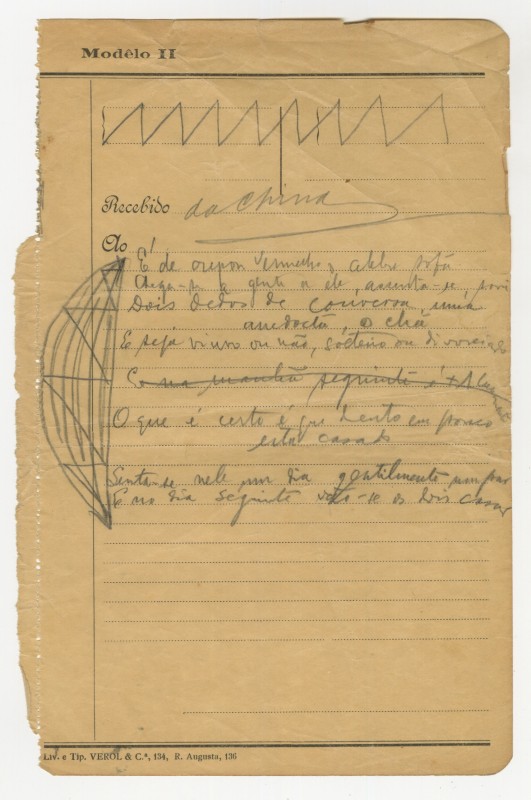 Modêlo II
Recebido da China
Ao
É de crepon vermelho, o célebre sofá
Chega-se a gente a ele, assenta-se, sorri
Dois dedos de conversa, uma
anedocta, o chá
E seja viuvo ou não, solteiro ou divorciado
E na manhã seguinte é
O que é certo é que dentro em pouco
está casado
Senta-se nele um dia gentilmente um par
E no dia seguinte vão-se os dois casar
Liv. e Tip. VEROL & C.ª, 134, R. Augusta, 136